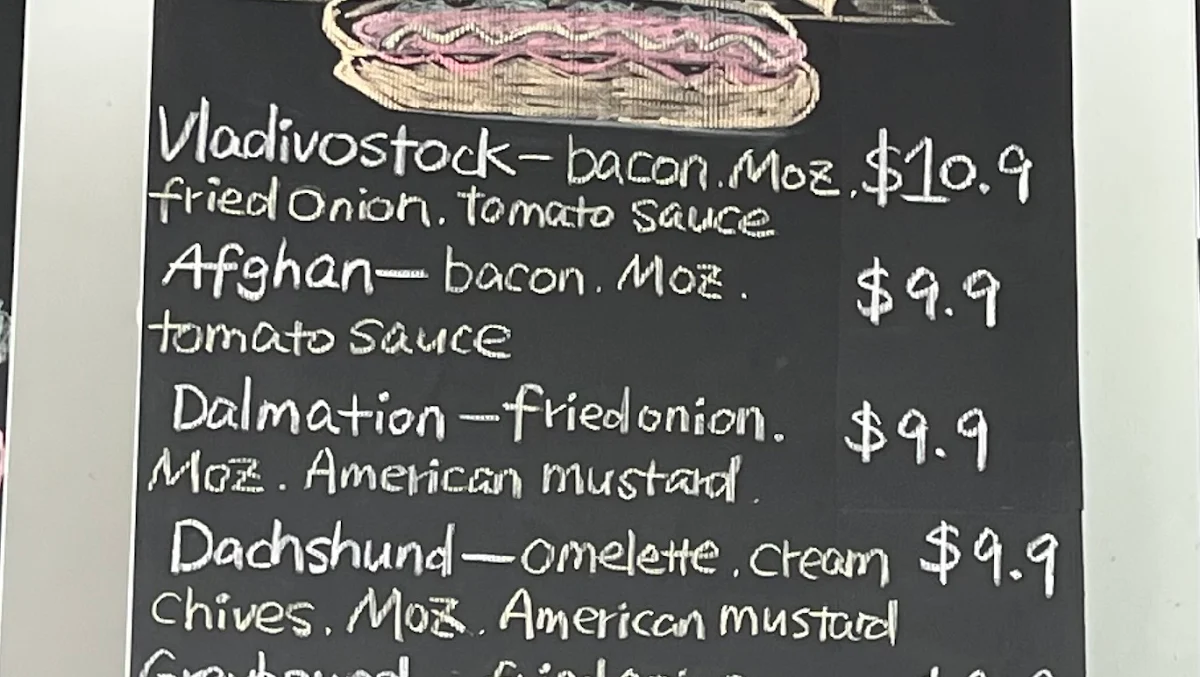 Vladivostock - bacon. Moz. $10.9
fried Onion. tomato sauce
Afghan - bacon. Moz. $9.9
tomato sauce
Dalmation - fried onion. $9.9
Moz. American mustard.
Dachshund - omelette. cream $9.9
chives. Moz. American mustard